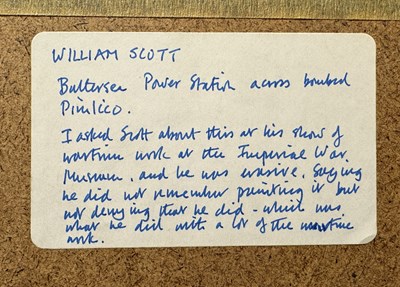 WILLIAM SCOTT
Battersea Power Station across bombed
Pimlico.
I asked Scott about this at his show of
wartime work at the Imperial War
Museum, and he was evasive, saying
he did not remember painting it but
not denying that he did - which was
what he did with a lot of the wartime
work.